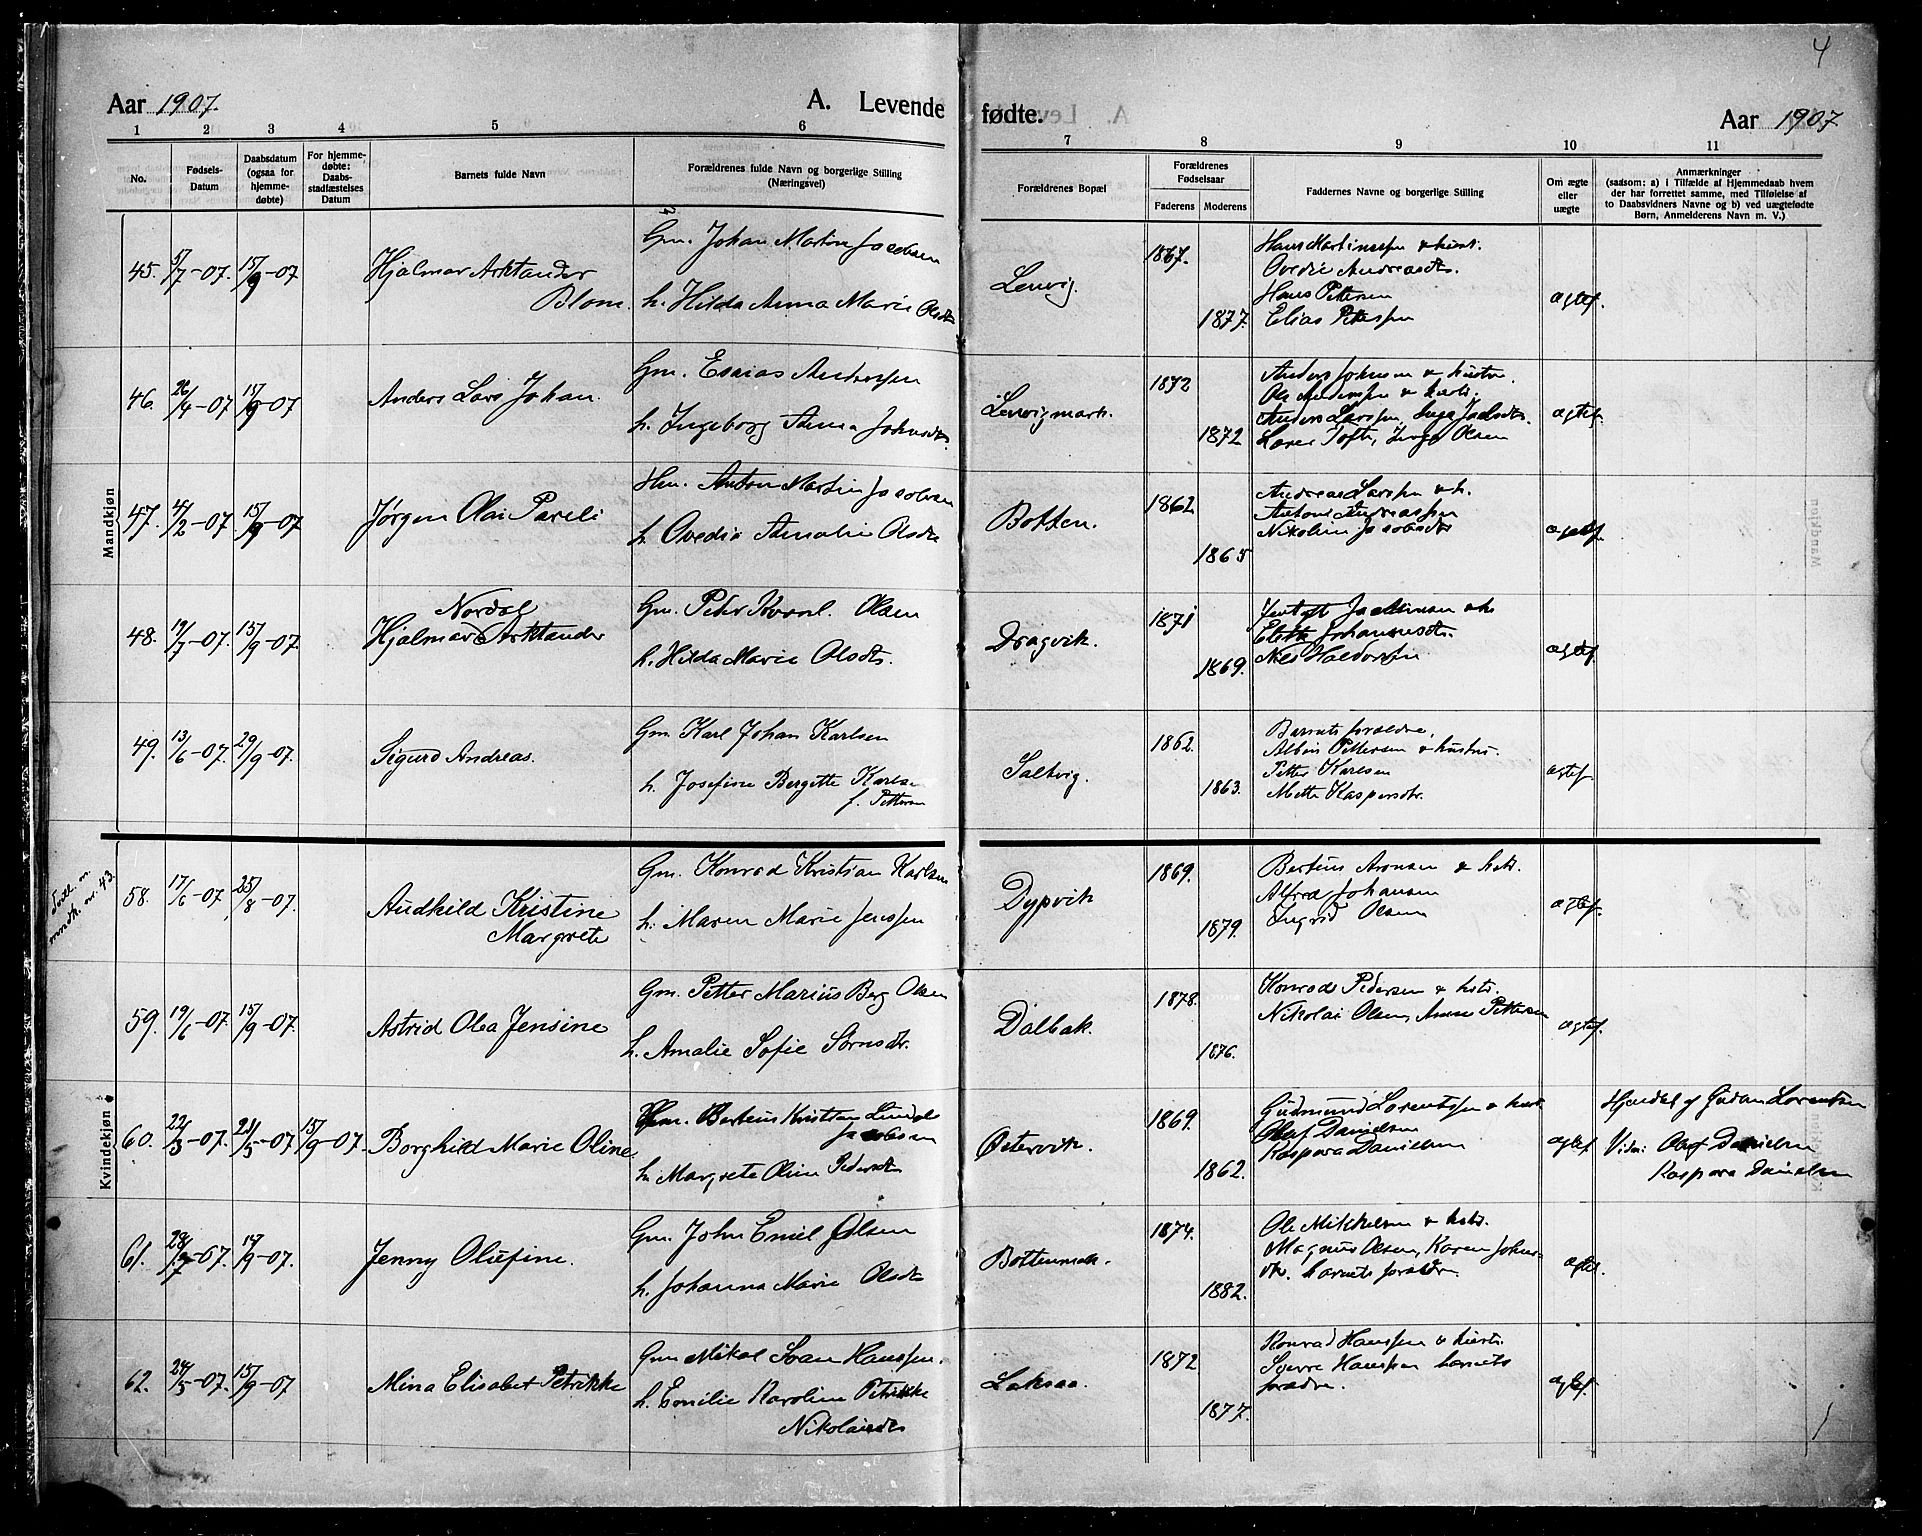 4
Aar 1907. A. Levende fødte. Aar 1907.
1 2 3 4 5 6 7 8 9 10 11
No.
Fødsels-Datum
Daabsdatum (ogsaa for hjemme-døbte)
For hjemme-døbte: Daabs-stadfæstelses Datum
Barnets fulde Navn
Forældrenes fulde Navn og borgerlige Stilling (Næringsvei)
Forældrenes Bopæl
Forældrenes Fødselsaar
Faderens Moderens
Faddernes Navne og borgerlige Stilling
Om ægte eller uægte
Anmærkninger
(saasom: a) i Tilfælde af Hjemmedaab hvem
der har forrettet samme, med Tilføielse af
to Daabsvidners Navne og b) ved uægtefødte
Børn, Anmelderens Navn m. V.)
Mandkjøn
45. 5/7-07. 15/9-07 Hjalmar Arktander Blom. Gm. Johan Martin Jacobsen
h. Hilda Anna Marie Olsdtr Lenvig. 1867. 1877. Hans Martinussen & hust.
Ovedie Andreasdtr.
Hans Pettersen
Elias Petersen
ægtef.
46. 26/4-07 15/9-07 Anders Lars Johan. Gm. Esaias Anderssen
h. Ingeborg Anna Johnsdtr Lenvigmark. 1872 1872 Anders Johnsen & hustru.
Ole Anderssen & hust.
Anders Larssen,
Tofte, Inga Olsen
ægtef.
47. 4/2-07 15/9-07 Jørgen Olai Pareli Hm. Anton Martin Jacobsen
h. Ovedia Amalie Olsdtr Botten. 1862 1865 Andreas Larssen & h.
Antone Andreassen
Nikoline Jacobsdtr
ægtef.
48. 19/7-07. 15/9-07. Hjalmar Nordal Arktander Gm. Peter Kornel. Olsen
h. Hilda Marie Olsdtr. Dragvik. 1871 1869. Jentoft & h.
Johannesdtr.
Nils Haldorsen
ægtef.
49. 13/6-07. 29/9-07. Sigurd Andreas. Gm. Karl Johan Karlsen
h. Josefine Bergitte Karlsen
f. Pettersen Saltvig. 1862. 1863. Barnets forældre,
Albin Pettersen & hustru.
Petter Karlsen
Mette Kaspersdtr.
ægtef.
Kvindekjøn
Tvil. m. mndk. nr. 43.
58. 17/6-07 25/8-07. Audhild Kristine Margrete Gm. Konrad Kristian Karlsen
h. Maren Marie Jenssen Dypvik 1869. 1879. Bertius Aronsen & hst.
Alfred Johansen
Ingrid Olsen
ægtef.
59. 19/6-07 15/9-07. Astrid Olea Jensine Gm. Petter Marius Berg Olsen
h. Amalie Sofie Sørnsdtr. Dalbak. 1878. 1876. Konrads Pedersen & hst.
Nikolai Olsen, Anne Pettersen
ægtef.
60. 22/3-07. 21/5-07 15/9-07. Borghild Marie Oline Hm. Berteus Kristian Lindal Jacobsen
h. Margrete Oline Pedersdtr Østervik. 1869. 1862. Gudmund Lorentsen & hust.
Olaf Danielsen
Kaspara Danielsen
ægtef. Hjemdøbt af Lorentsen
Vidn: Olaf Danielsen
Kaspara Danielsen
61. 28/7-07. 14/9-07. Jenny Olufine. Gm. John Emil Olsen
h. Johanna Marie Olsdtr Bottenmrk. 1874. 1882. Ole Mikkelsen & hst.
Magnus Olsen, Karen Johns-
dtr. barnets forældre.
ægtef.
62. 24/5-07. 15/9-07 Mina Elisabet Petrikke Gm. Mikal Hanssen.
h. Emilie Karoline Petrikke
Nikolaisdtr Laksaa. 1872 1877. Konrad Hanssen & hust.
Sverre Hanssen barnets
forældre.
ægtef.